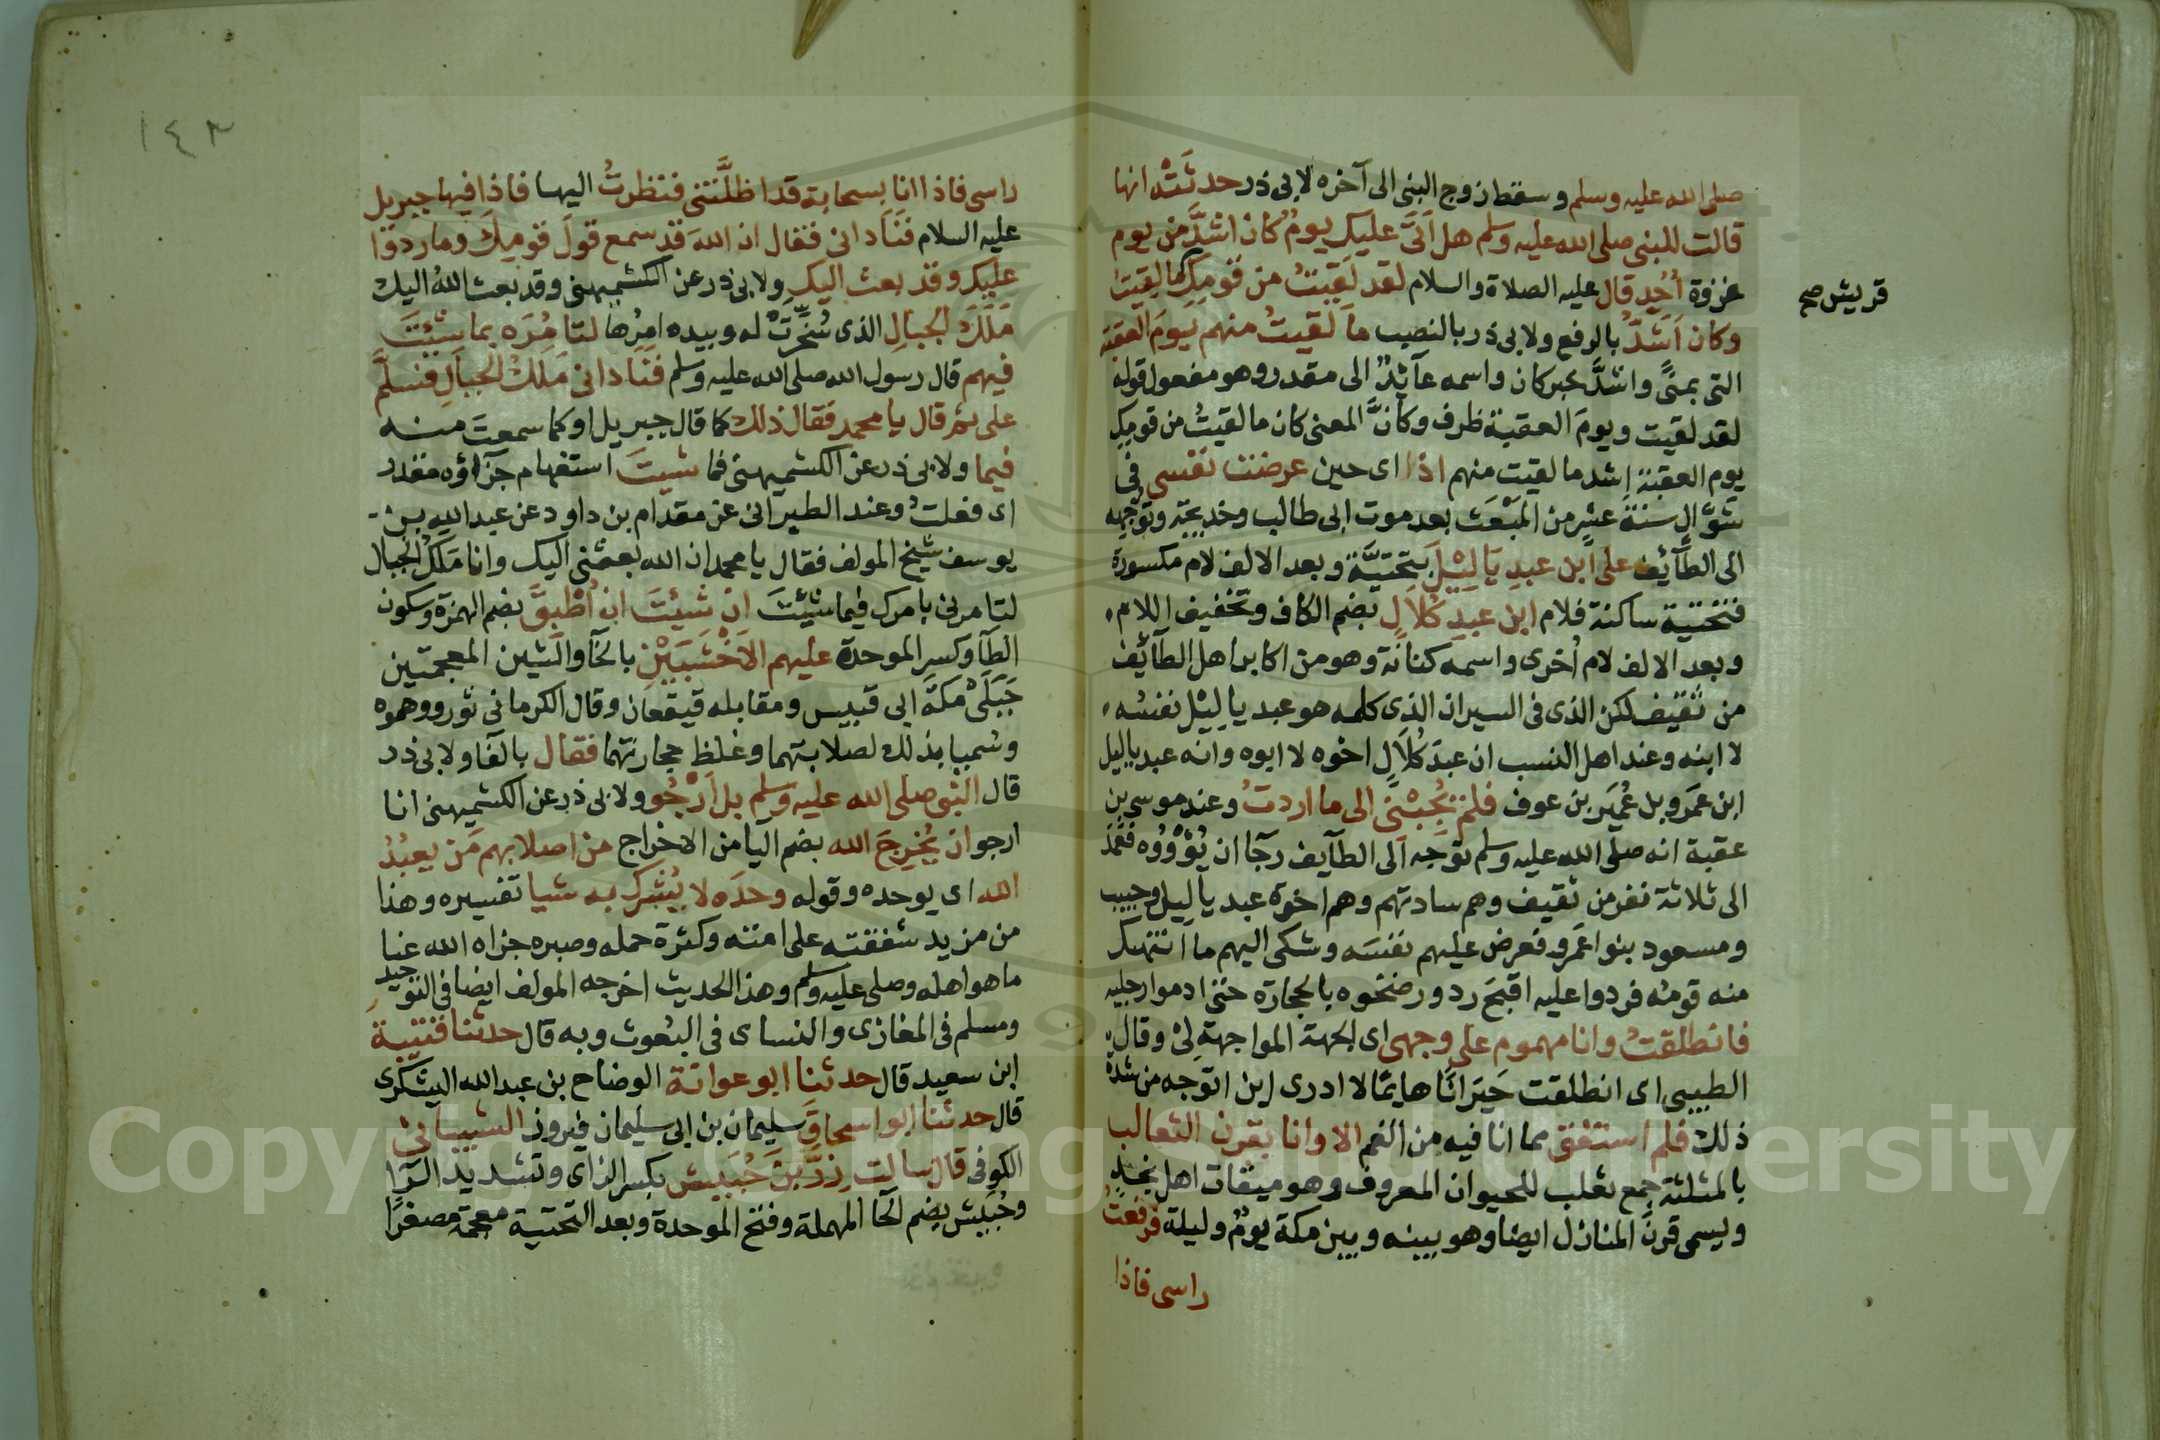 صلى الله عليه وسلم وسقط زوج النبى الى آخره لابى ذر حدثَتْه انها
قالت للنبى صلى الله عليه وسلم هل اَتَى عليك يومٌ كان اشدَّ من يوم
غزوة اُحُدٍ قال عليه الصلاة والسلام لقد لَقِيتُ من قومِكِ ما لقِيتُ
قريش صح
وكان اَشَدُّ بالرفع ولابى ذر بالنصب ما لَقيتُ منهم يومَ العقبة
التى بمنىً واشدَّ خبر كان واسمه عآئدٌ الى مقدر وهو مفعول قوله
لقد لقيت ويومَ العقبة ظرف وكانَّ المعنى كان ما لقيتُ من قومِكِ
يوم العقبة اشد ما لقيت منهم اذ اى حين عرضت نفسى فى
شوَّال سنة عشر من المَبْعَث بعد موت ابى طالب وخديجة وتوجُّهِه
الى الطآئِف على ابن عبدِ يَا لِيْلَ بتحتيَّة وبعد الالف لام مكسورة
فتحتية ساكنة فلام ابن عبد كُلَالٍ بضم الكاف وتخفيف اللام
وبعد الالف لام اُخرى واسمه كنانة وهو من اكابر اهل الطآئف
من ثقيف لكن الذى فى السير ان الذى كلمه هو عبد يا ليْل نفسُه
لا ابنه وعند اهل النسب ان عبدَ كُلَالٍ اخوه لا ابوه وانه عبد ياليل
ابن عمرو بل عُمَير بن عوف فلم يُجِبْنى الى ما اردتُ وعند موسى بن
عقبة انه صلى الله عليه وسلم توجَّه الى الطآيف رجآ ان يُؤْوُوه فعمَد
الى ثلاثة نفر من ثقيف وهم سادتهم وهم اخوة عبد يا لِيل وحبيب
ومسعود بنوا عَمرو فعرض عليهم نفسَه وشكى اليهم ما انتهك
منه قومُه فردوا عليه اقبحَ رد ورضخوه بالحجارة حتى ادموا رجليه
فانطلقتُ وانا مهموم على وجهى اى الجهة المواجهة لى وقال
الطيبى اى انطلقت حَيرَانًا هايمًا لا ادرى اين اتوجه من شدة
ذلك فلم استفق مما انا فيه من الغم الا وانا بقرن الثعالب
بالمثلثة جمع ثعلب للحيوان المعروف وهو ميقات اهل نجدٍ
ويسمى قرنَ المنازل ايضا وهو بينه وبين مكة يومٌ وليلة فرفعتُ
راسى فاذا
١٤٣
راسى فاذا انا بسحابة قد اظلَّتنى فنظرتُ اليها فاذا فيها جبريل
عليه السلام فنَادانى فقال ان اللهَ قد سمع قولَ قومِكَ وما ردوا
عليك وقد بعث اليك ولابى ذر عن الكشميهنى وقد بعث اللهُ اليك
مَلَكَ الجبالِ الذى سُخِّرَتْ له وبيده امرُها لتامُرَه بما شِئتَ
فيهم قال رسول الله صلى الله عليه وسلم فنَادانى مَلَكُ الجبالِ فسلَّم
على ثم قال يا محمد فقال ذلك كما قال جبريل او كما سمعتَ منه
فيما ولابى ذر عن الكشميهنى فما شيتَ استفهام جزآؤه مقدر
اى فعلتُ وعند الطبرانى عن مقدام بن داود عن عبد الله بن
يوسف شيخ المولف فقال يا محمد ان الله بعثنى اليك وانا مَلَكُ الجبال
لتامرنى بامرك فيما شئتَ ان شئتَ ان اُطْبِقَ بضم الهمزة وسكون
الطآ وكسر الموحدة عليهم الاَخْشَبَيْنِ بالخآ والشين المعجمتين
جَبَلَىْ مكةَ ابى قبيس ومقابله قيقعان وقال الكرمانى ثور ووهموه
وسُميا بذلك لصلابتهما وغلظ حجارتهما فقال بالفا ولابى ذر
قال النبى صلى الله عليه وسلم بل اَرْجُو ولابى ذر عن الكشميهنى انا
ارجو ان يُخرِجَ الله بضم اليا من الاخراج من اصلابهم مَن يعبُدُ
الله اى يوحده وقوله وحدَه لا يُشرِك به شيا تفسيره وهذا
من مزيد شفقته على امته وكثرة حمله وصبره جزاه الله عنا
ما هو اهله وصلى عليه وسلم وهذا الحديث اخرجه المولف ايضا فى التوحيد
ومسلم فى المغازى والنساى فى البُعوث وبه قال حدثنا قتيبة
ابن سعيد قال حدثنا ابو عوانة الوضاح بن عبد الله اليشكرى
قال حدثنا ابو اسحاق سليمان بن ابى سليمان فيروز الشيبانى
الكوفى قال سالت زِرَّ بْنَ حُبَيش بكسر الزاى وتشديد الرّآ
وحُبَيش بضم الحآ المهملة وفتح الموحدة وبعد التحتية معجمة مصغرًا
Copyright © King Saud University